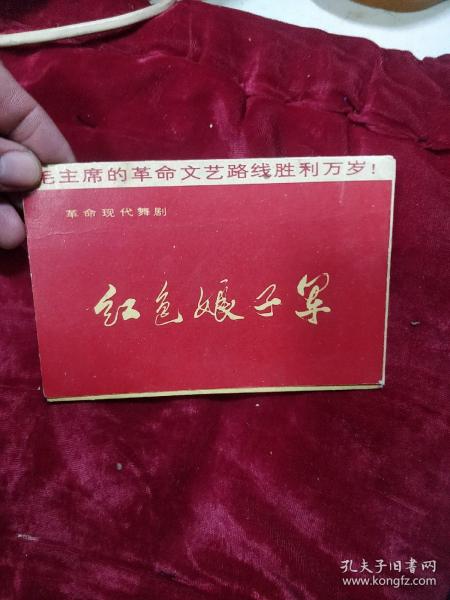 毛主席的革命文艺路线胜利万岁!
革命现代舞剧
红色娘子军
孔夫子旧书网
www.kongfz.com